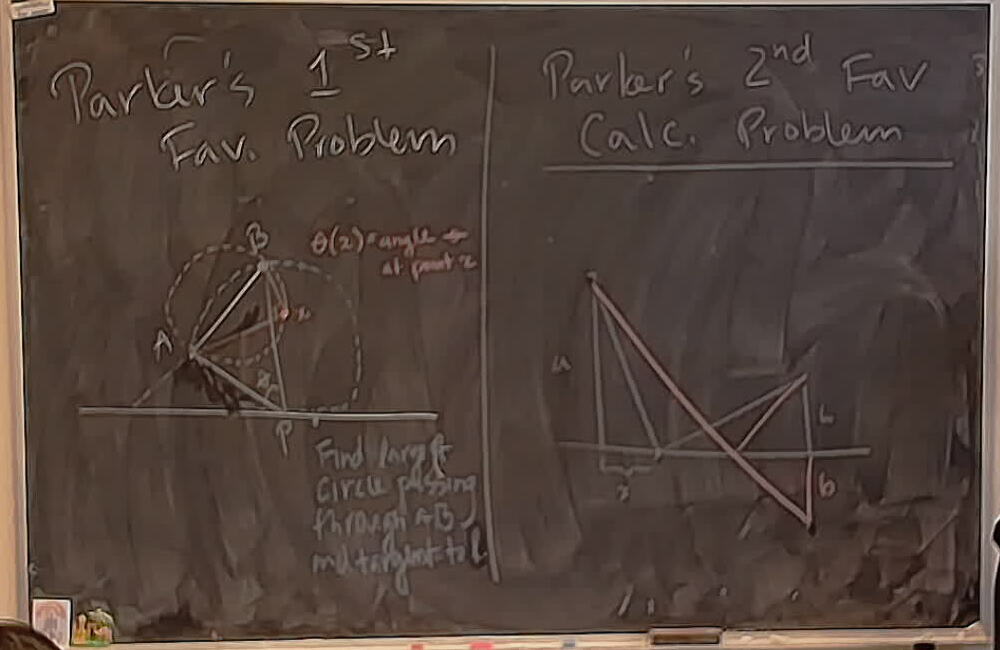 Parker's 1st
Fav. Problem
B
θ(x) = angle
at point x
x
A
P
Find largest
circle passing
through AB,
and tangent to l
Parker's 2nd Fav
Calc. Problem
a
b
x
b